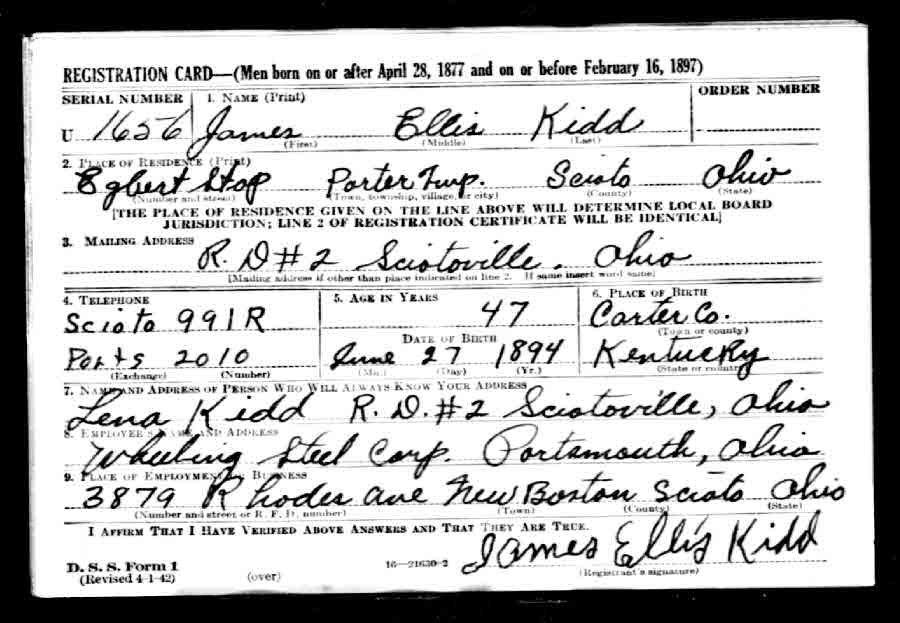 REGISTRATION CARD—(Men born on or after April 28, 1877 and on or before February 16, 1897)
SERIAL NUMBER 1. NAME (Print) ORDER NUMBER
U 1656 James Ellis Kidd
(First) (Middle) (Last)
2. PLACE OF RESIDENCE (Print)
Egbert Stop Porter Twp. Scioto Ohio
(Number and street) (Town, township, village, or city) (County) (State)
[THE PLACE OF RESIDENCE GIVEN ON THE LINE ABOVE WILL DETERMINE LOCAL BOARD
JURISDICTION; LINE 2 OF REGISTRATION CERTIFICATE WILL BE IDENTICAL]
3. MAILING ADDRESS
R. D # 2 Sciotoville. Ohio
[Mailing address if other than place indicated on line 2. If same insert word same]
4. TELEPHONE 5. AGE IN YEARS 6. PLACE OF BIRTH
Scioto 991R 47 Carter Co.
(Town or county)
DATE OF BIRTH
Ports 2010 June 27 1894 Kentucky
(Exchange) (Number) (Mo.) (Day) (Yr.) (State or country)
7. NAME AND ADDRESS OF PERSON WHO WILL ALWAYS KNOW YOUR ADDRESS
Lena Kidd R. D. # 2 Sciotoville, Ohio
8. EMPLOYER'S NAME AND ADDRESS
Wheeling Steel Corp. Portsmouth, Ohio
9. PLACE OF EMPLOYMENT OR BUSINESS
3879 Rhodes ave New Boston Scioto Ohio
(Number and street or R. F. D. number) (Town) (County) (State)
I AFFIRM THAT I HAVE VERIFIED ABOVE ANSWERS AND THAT THEY ARE TRUE.
James Ellis Kidd
D. S. S. Form 1
(Revised 4-1-42) (over) 16—21630-2 (Registrant's signature)